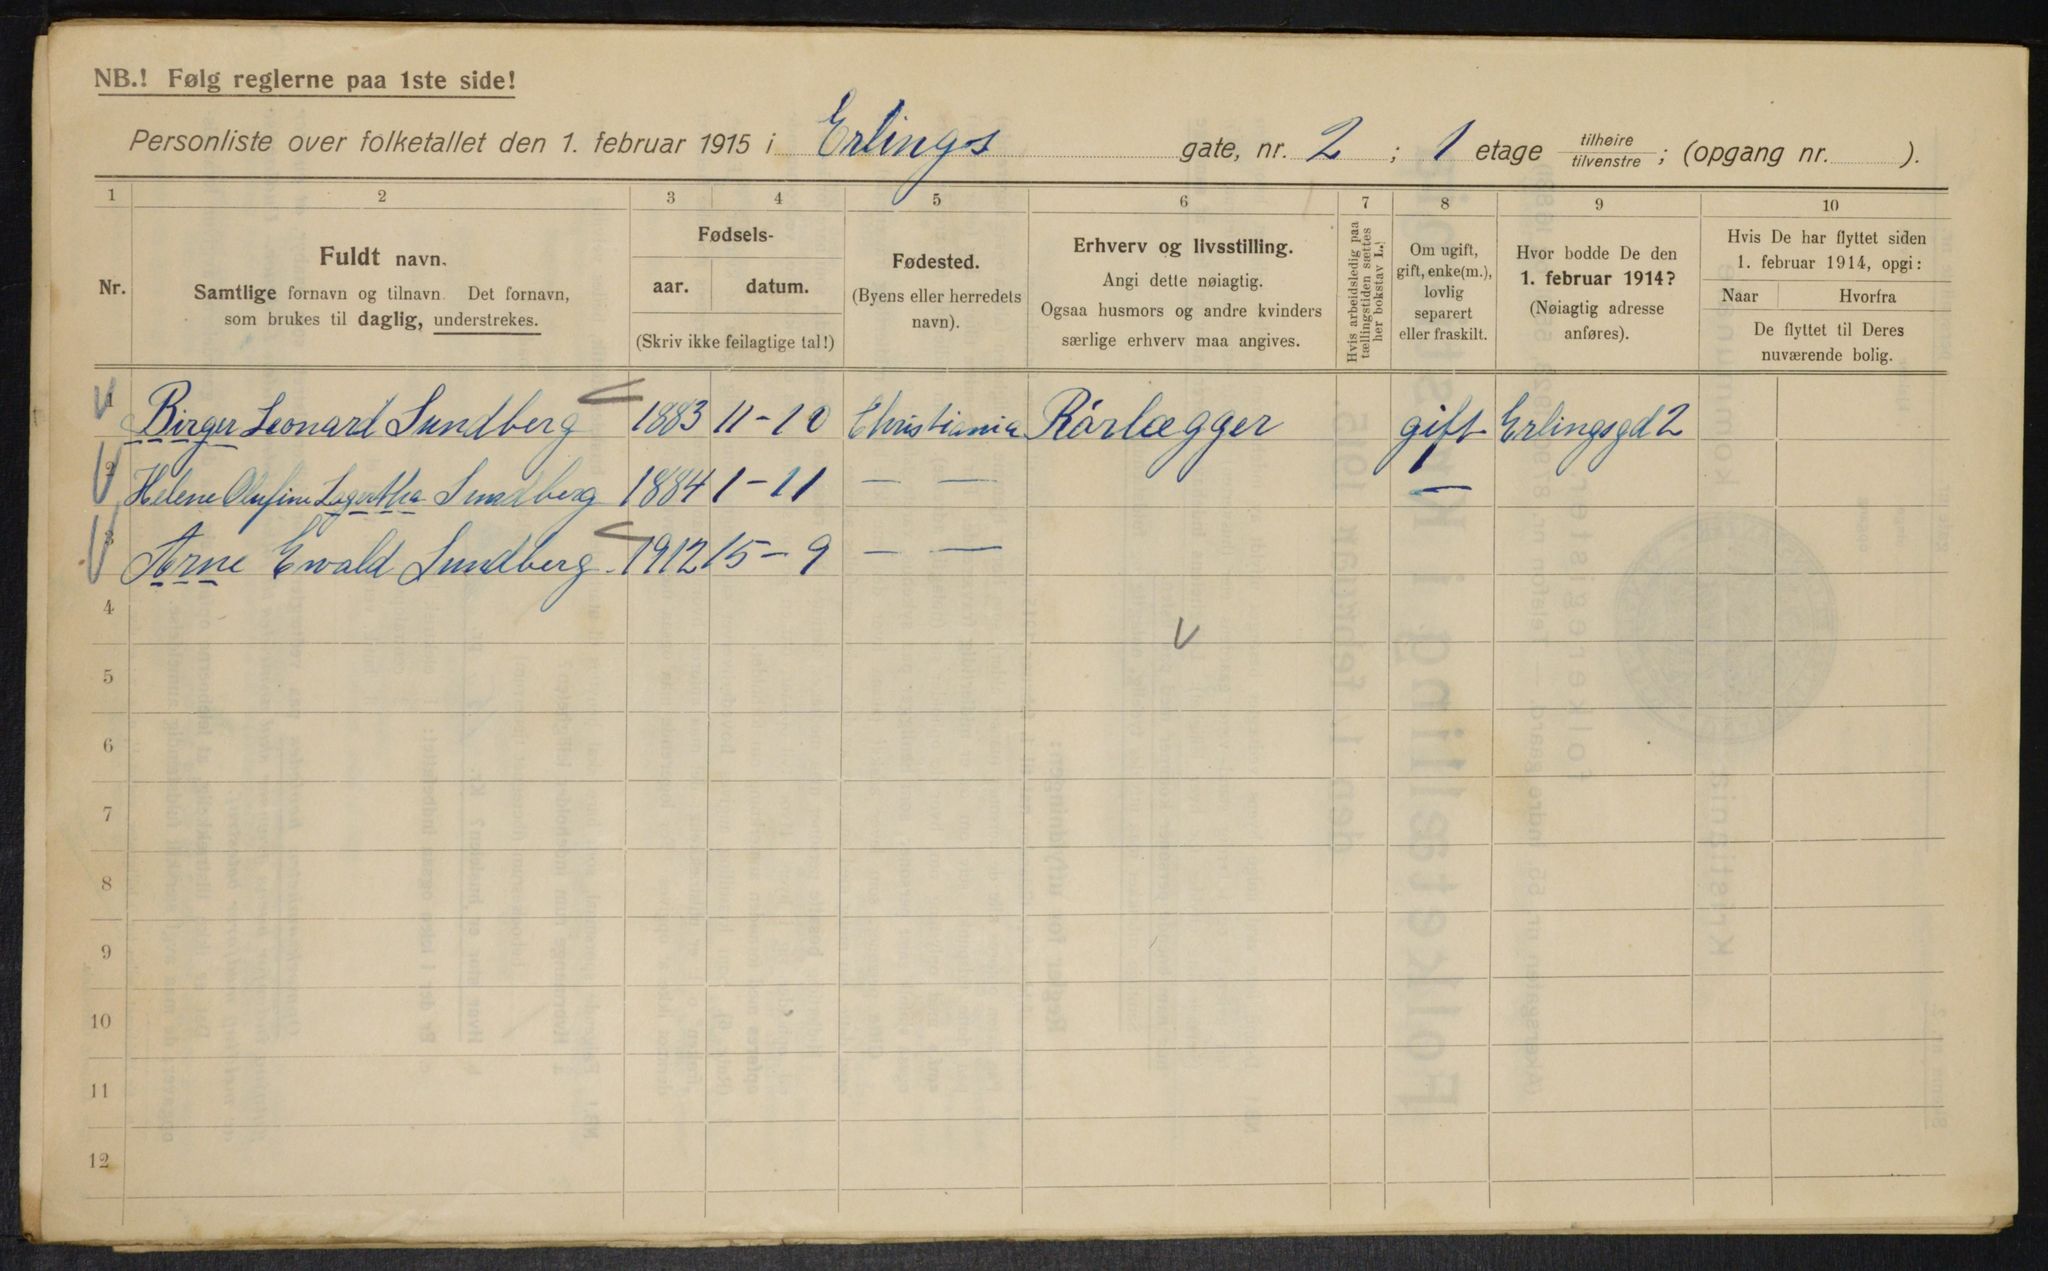 NB.! Følg reglerne paa 1ste side!
Personliste over folketallet den 1. februar 1915 i Erlings gate, nr. 2 ; 1 etage tilhøire tilvenstre ; (opgang nr. ).
1 2 3 4 5 6 7 8 9 10
Nr.
Fuldt navn.
Samtlige fornavn og tilnavn. Det fornavn,
som brukes til daglig, understrekes.
Fødsels-
aar. datum.
(Skriv ikke feilagtige tal!)
Fødested.
(Byens eller herredets
navn).
Erhverv og livsstilling.
Angi dette nøiagtig.
Ogsaa husmors og andre kvinders
særlige erhverv maa angives.
Hvis arbeidsledig paa
tællingstiden sættes
her bokstav L.
Om ugift,
gift, enke(m.),
lovlig
separert
eller fraskilt.
Hvor bodde De den
1. februar 1914?
(Nøiagtig adresse
anføres).
Hvis De har flyttet siden
1. februar 1914, opgi:
Naar Hvorfra
De flyttet til Deres
nuværende bolig.
1 Birger Leonard Sundberg 1883 11-10 Christiania Rörlægger gift Erlingsgd 2
2 Helene Olufine Lagertha Sundberg 1884 1-11 — — —
3 Arne Ewald Sundberg 1912 15-9 — —
4
5
6
7
8
9
10
11
12